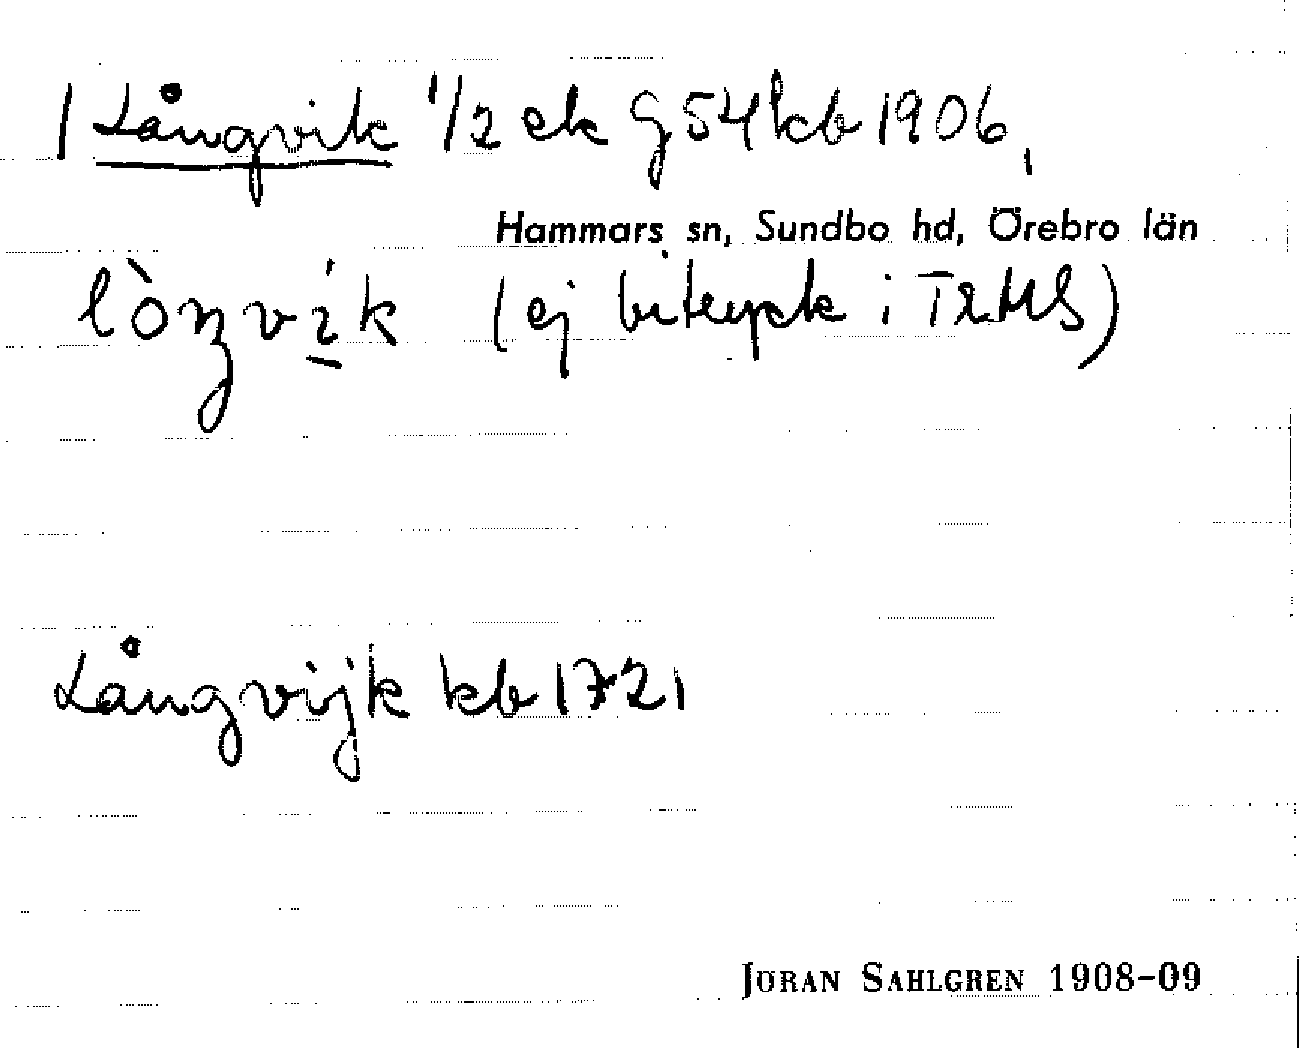 | Långvik 1/2 ek G54 kb 1906,
Hammars sn, Sundbo hd, Örebro län
lòŋvík (ej bitryck i
Långvijk kb 1721
JÖRAN SAHLGREN 1908-09